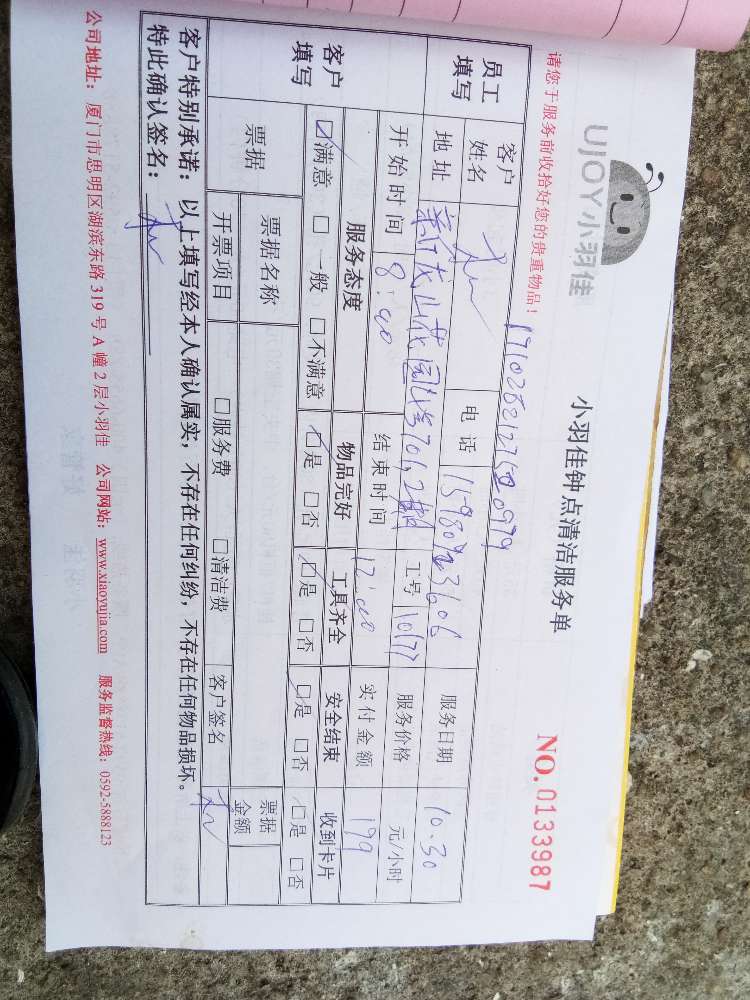 UJOY小羽佳
小羽佳钟点清洁服务单
NO. 0133987
请您于服务前收拾好您的贵重物品！
员工填写
客户姓名
电话
服务日期 10.30
地址
工号 10177
服务价格 元/小时
开始时间 8:00
结束时间 12:00
实付金额 199
客户填写
服务态度 物品完好 工具齐全 安全结束 收到卡片
☑满意 □一般 □不满意 ☑是 □否 ☑是 □否 ☑是 □否 □是 □否
票据
票据名称
票据金额
开票项目 □服务费 □清洁费 客户签名
客户特别承诺：以上填写经本人确认属实，不存在任何纠纷，不存在任何物品损坏。
特此确认签名：
公司地址：厦门市思明区湖滨东路 319 号 A 幢 2 层小羽佳 公司网站：www.xiaoyujia.com 服务监督热线：0592-5888123